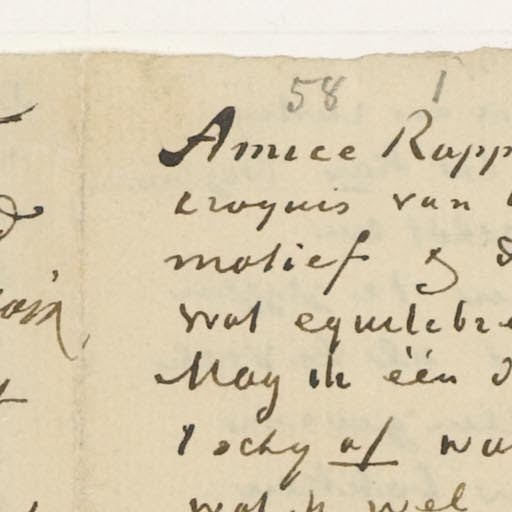 58 1
Amice Rapp
croquis van
motief &
wat equilibre
May ik één
't schy af wa
wat ik wel